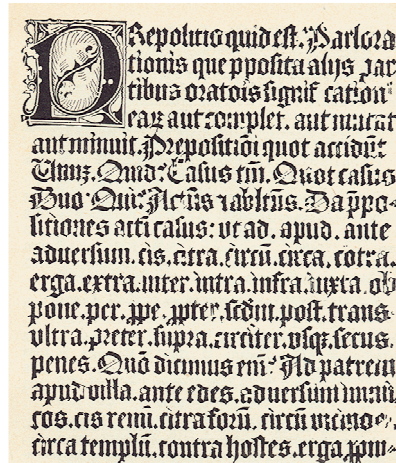 PRepositio quid est. Pars ora
tionis que p̱posita alijs par
tibus oratōis significationē
earū aut complet. aut mutat
aut minuit. Prepositiōi quot accidūt
Unū. Quid. Casus tm̄. Quot casus
Duo Qui. Acc̄us ⁊ ablatiuus. Da p̄po-
sitiones acc̄ti casus: vt ad. apud. ante
aduersum. cis. citra. circū. circa. cōtra.
erga. extra. inter. intra. infra. iuxta. ob
pone. per. ꝓpe. ꝓpter. scdm̄. post. trans
vltra. preter. supra. circiter. vsqꝫ. secus.
penes. Quō dicimus eni᷒ Ad patrem
apud villa. ante edes. aduersum inimi
cos. cis renū. citra forū. circū vicino
circa templū. contra hostes. erga